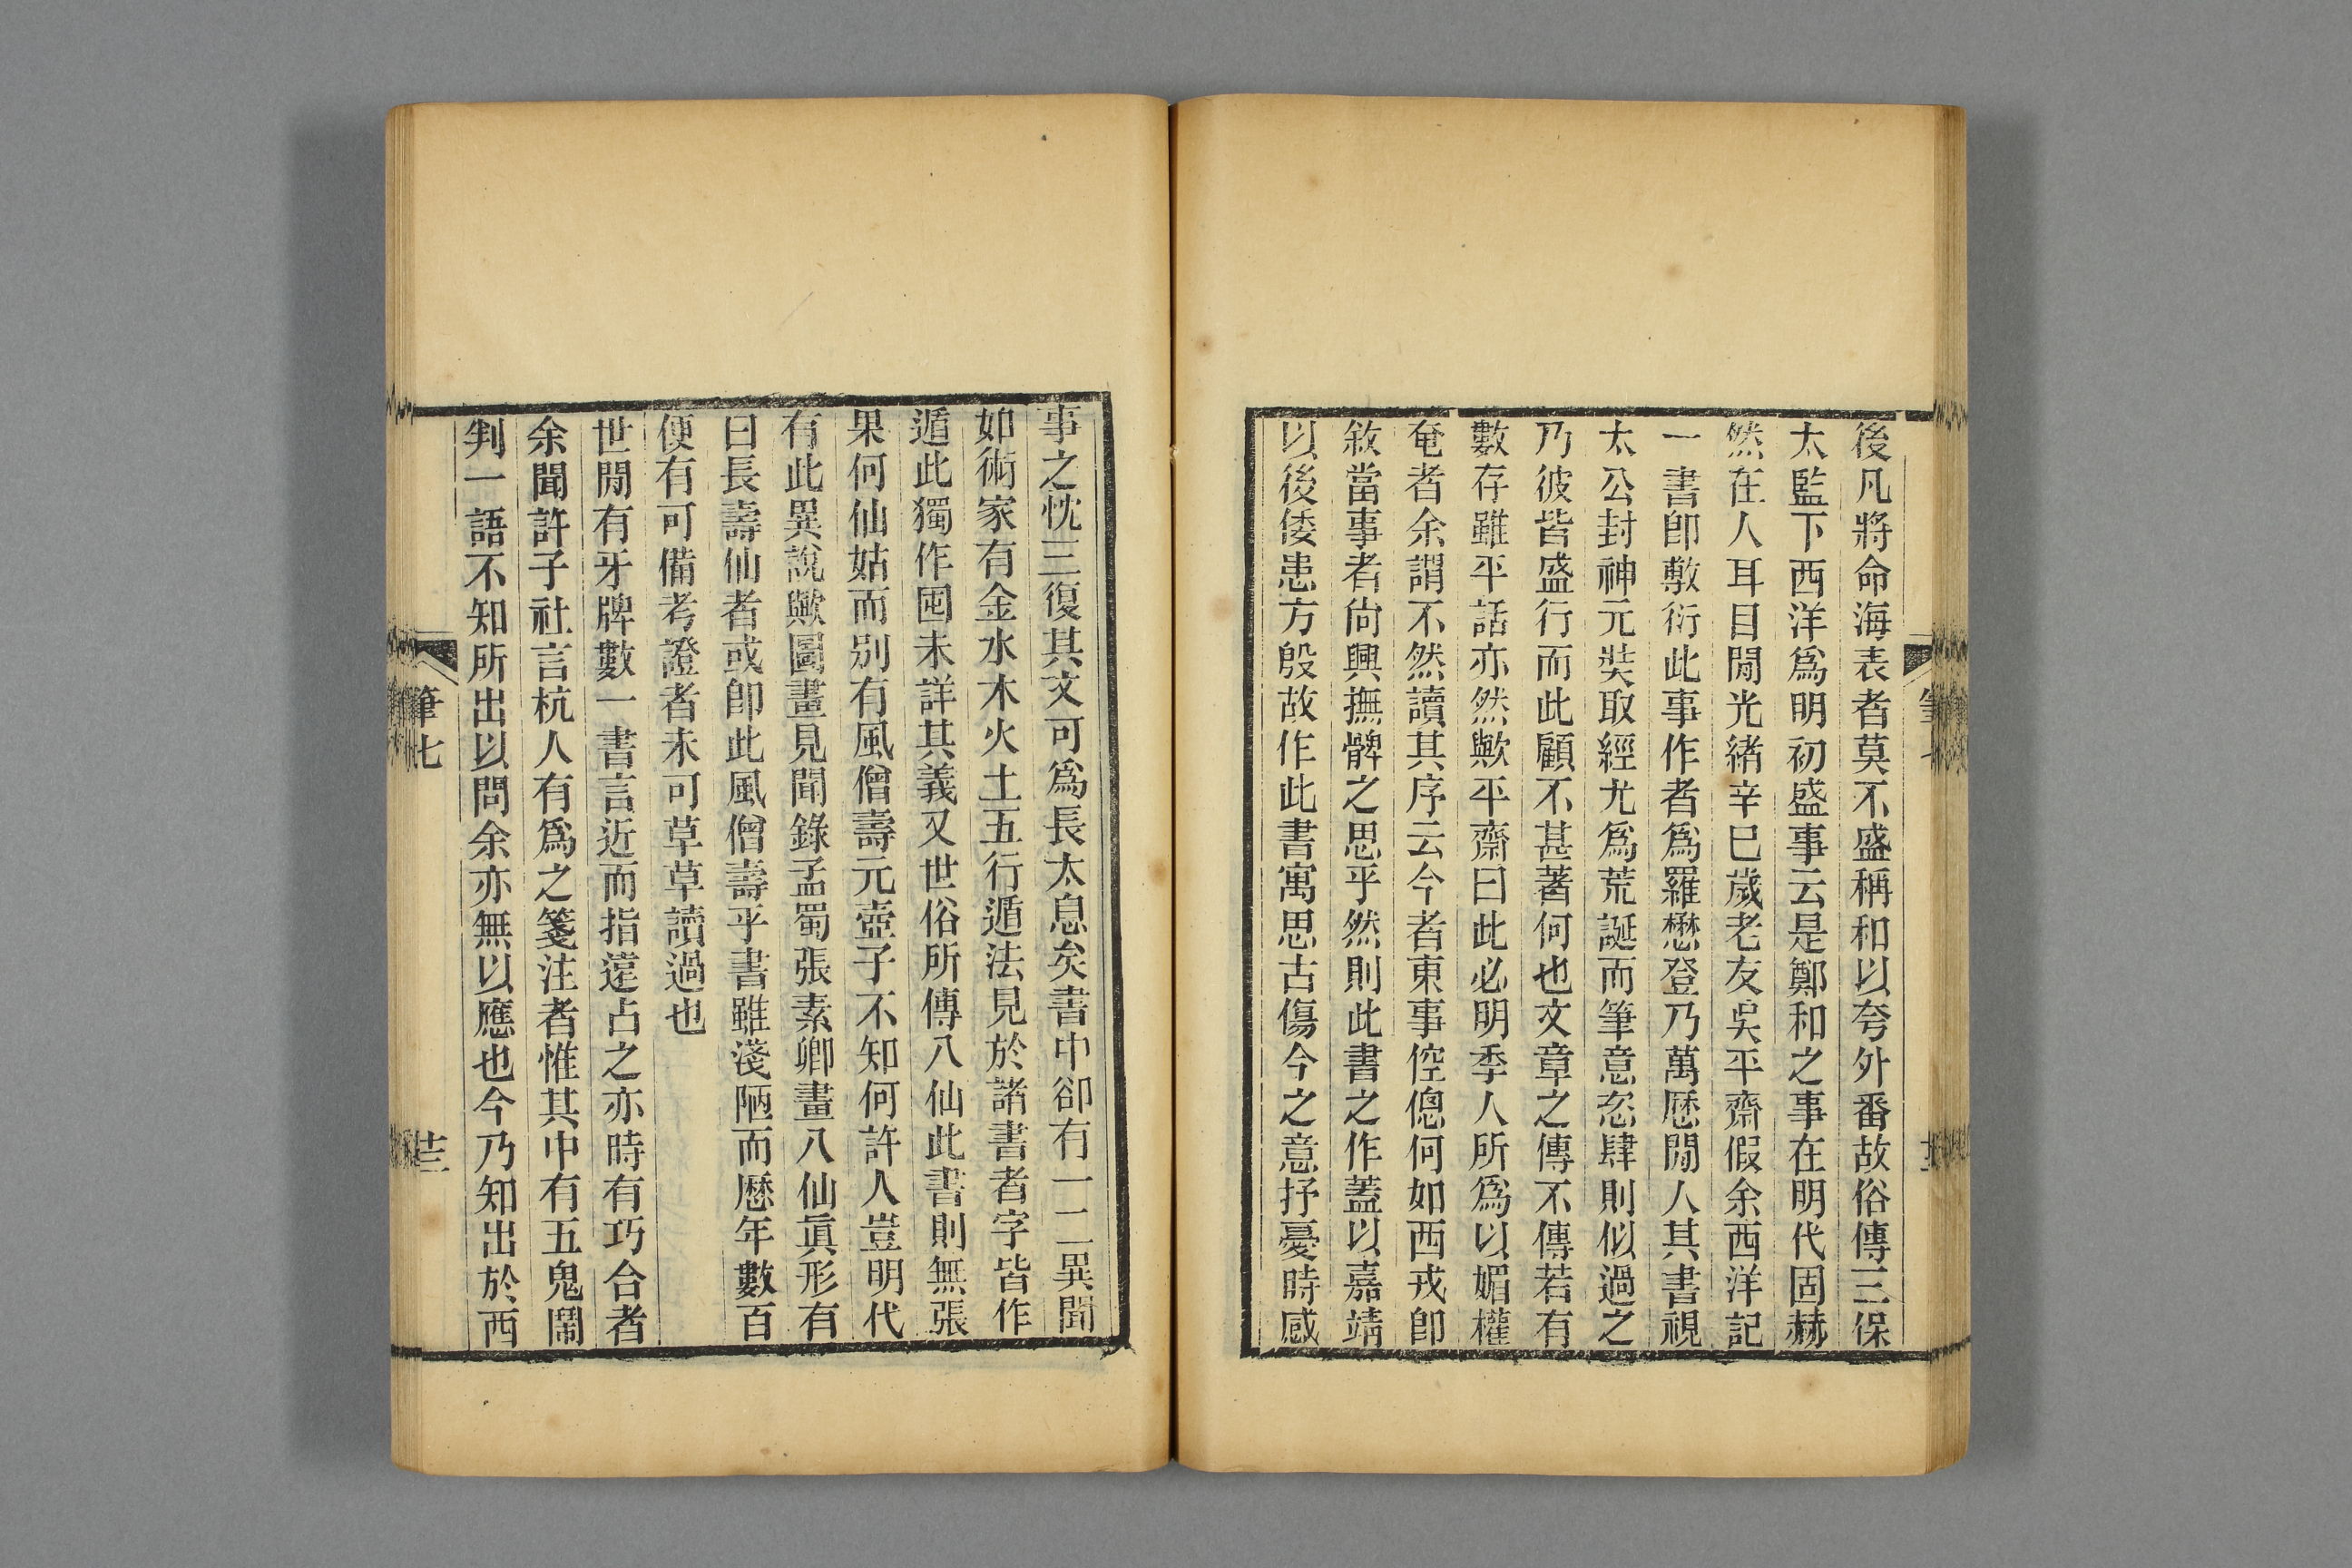 後凡將命海表者莫不盛稱和以夸外番故俗傳三保
太監下西洋爲明初盛事云是鄭和之事在明代固赫
然在人耳目閒光緒辛巳歲老友吳平齋假余西洋記
一書卽敷衍此事作者爲羅懋登乃萬厯閒人其書視
太公封神元奘取經尤爲荒誕而筆意恣肆則似過之
乃彼皆盛行而此顧不甚著何也文章之傳不傳若有
數存雖平話亦然歟平齋曰此必明季人所爲以媚權
奄者余謂不然讀其序云今者東事倥傯何如西戎卽
敘當事者尙興撫髀之思乎然則此書之作蓋以嘉靖
以後倭患方殷故作此書寓思古傷今之意抒憂時感
事之忱三復其文可爲長太息矣書中卻有一二異聞
如術家有金水木火土五行遁法見於諸書者字皆作
遁此獨作囤未詳其義又世俗所傳八仙此書則無張
果何仙姑而別有風僧壽元壺子不知何許人豈明代
有此異說歟圖畫見聞錄孟蜀張素卿畫八仙眞形有
曰長壽仙者或卽此風僧壽乎書雖淺陋而厯年數百
便有可備考證者未可草草讀過也
世閒有牙牌數一書言近而指遠占之亦時有巧合者
余聞許子社言杭人有爲之箋注者惟其中有五鬼鬧
判一語不知所出以問余亦無以應也今乃知出於西
筆七
卄三